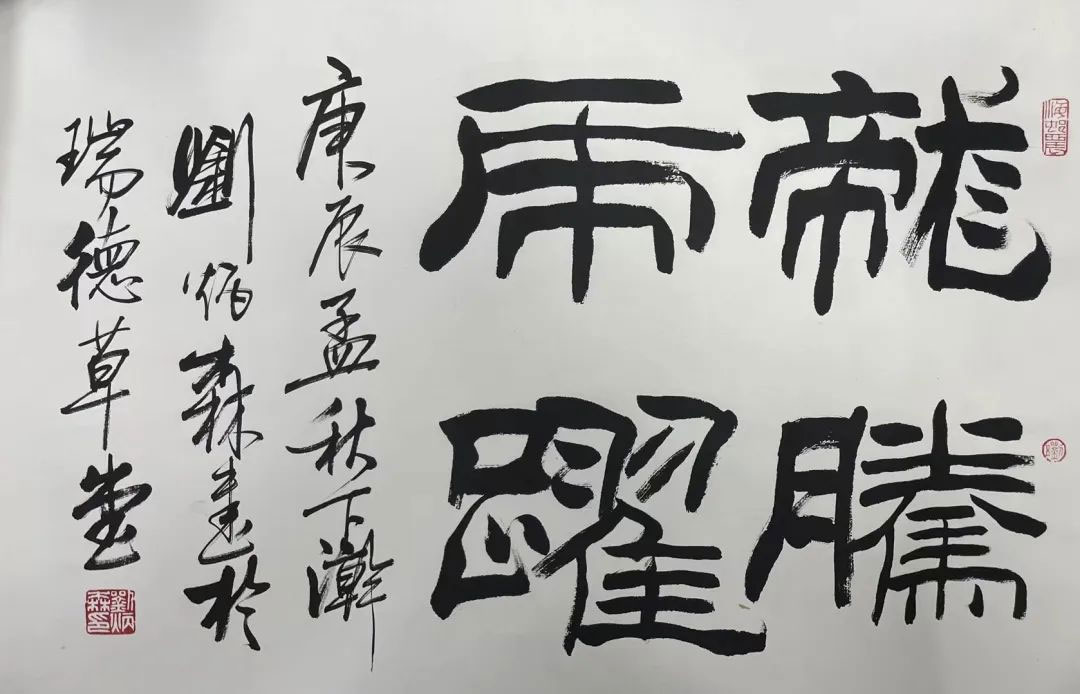 龍騰
虎躍
庚辰孟秋下澣
劉炳森書於
瑞德草堂
劉炳
森印